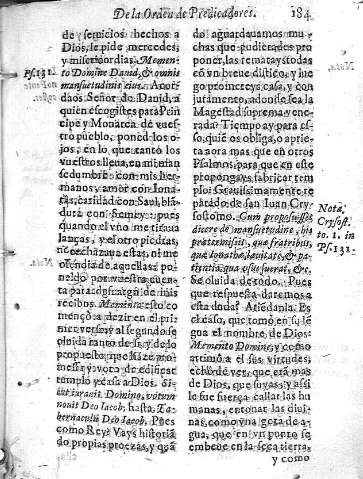 De la Orden de Predicadores. 184
de seruicios hechos a
Dios, le pide mercedes,
y misericordias. Memen-
Ps. 131. to Domine Dauid, & omnis
mansuetudinis eius. Acor-
daos Señor de Dauid, a
quien escogistes para Prin
cipe y Monarca de vues-
tro pueblo, poned los o-
jos, en lo que cantò los
vuestros llena, en mi man
sedumbre con mis her-
manos, y amor con Iona-
tas, caridad con Saul, blã
dura con Semey, pues
quando el vno me tiraua
lanças, y el otro piedras,
ni rechazaua estas, ni me
ofendia de aquellas, po-
neldo por vuestra cuen-
ta para cõ
recibos. Memento esto co-
mençò a dezir en el pri-
mer verso y al segundo se
oluida tanto desso, y de lo
propuesto, que haze pro-
messa y voto de edificar
templo y casa a Dios. Si-
cut iurauit Domino, votum
vouit Deo Iacob, hasta, Ta-
bernaculũ Deo Iacob. Pues
como Rey? Vays historiã
do propias proezas, y quã
do aguardauamos mu-
chas que pudierades pro
poner, las rematays todas
cõ vn breue distico, y lue
go proinereys casa, y con
juramento, adonde sea la
Magestad suprema y ve-
nerada? Tiempo ay para es-
so, què os obliga, o aprie-
ta ora mas que en otros
Psalmos, para que en este
propongays fabricar tem
plo? Grauissimamente re
parado de san Iuan Cry-
sostomo. Cum proposuisset
dicere de mansuetudine, his
prætermissis, que fratribus,
que Ionathæ, lenitate, & pa-
tientia qua vsus fuerat, &c.
Se oluida de todo. Pues
que respuesta daremos a
esta duda? Atiedanla. Es
el caso, que tomò en su lẽ
gua el nombre de Dios:
Memento Domine, y como
arrimò a el sus virtudes,
echò de ver, que era mas
de Dios, que suyas, y assi
le fue fuerça callar las hu
manas, entonar las diui-
nas, como vna gota de a-
gua, que en vn punto se
embeue en la seca tierra,
y como
Nota.
Crysost.
to. 1. in
Ps. 131.